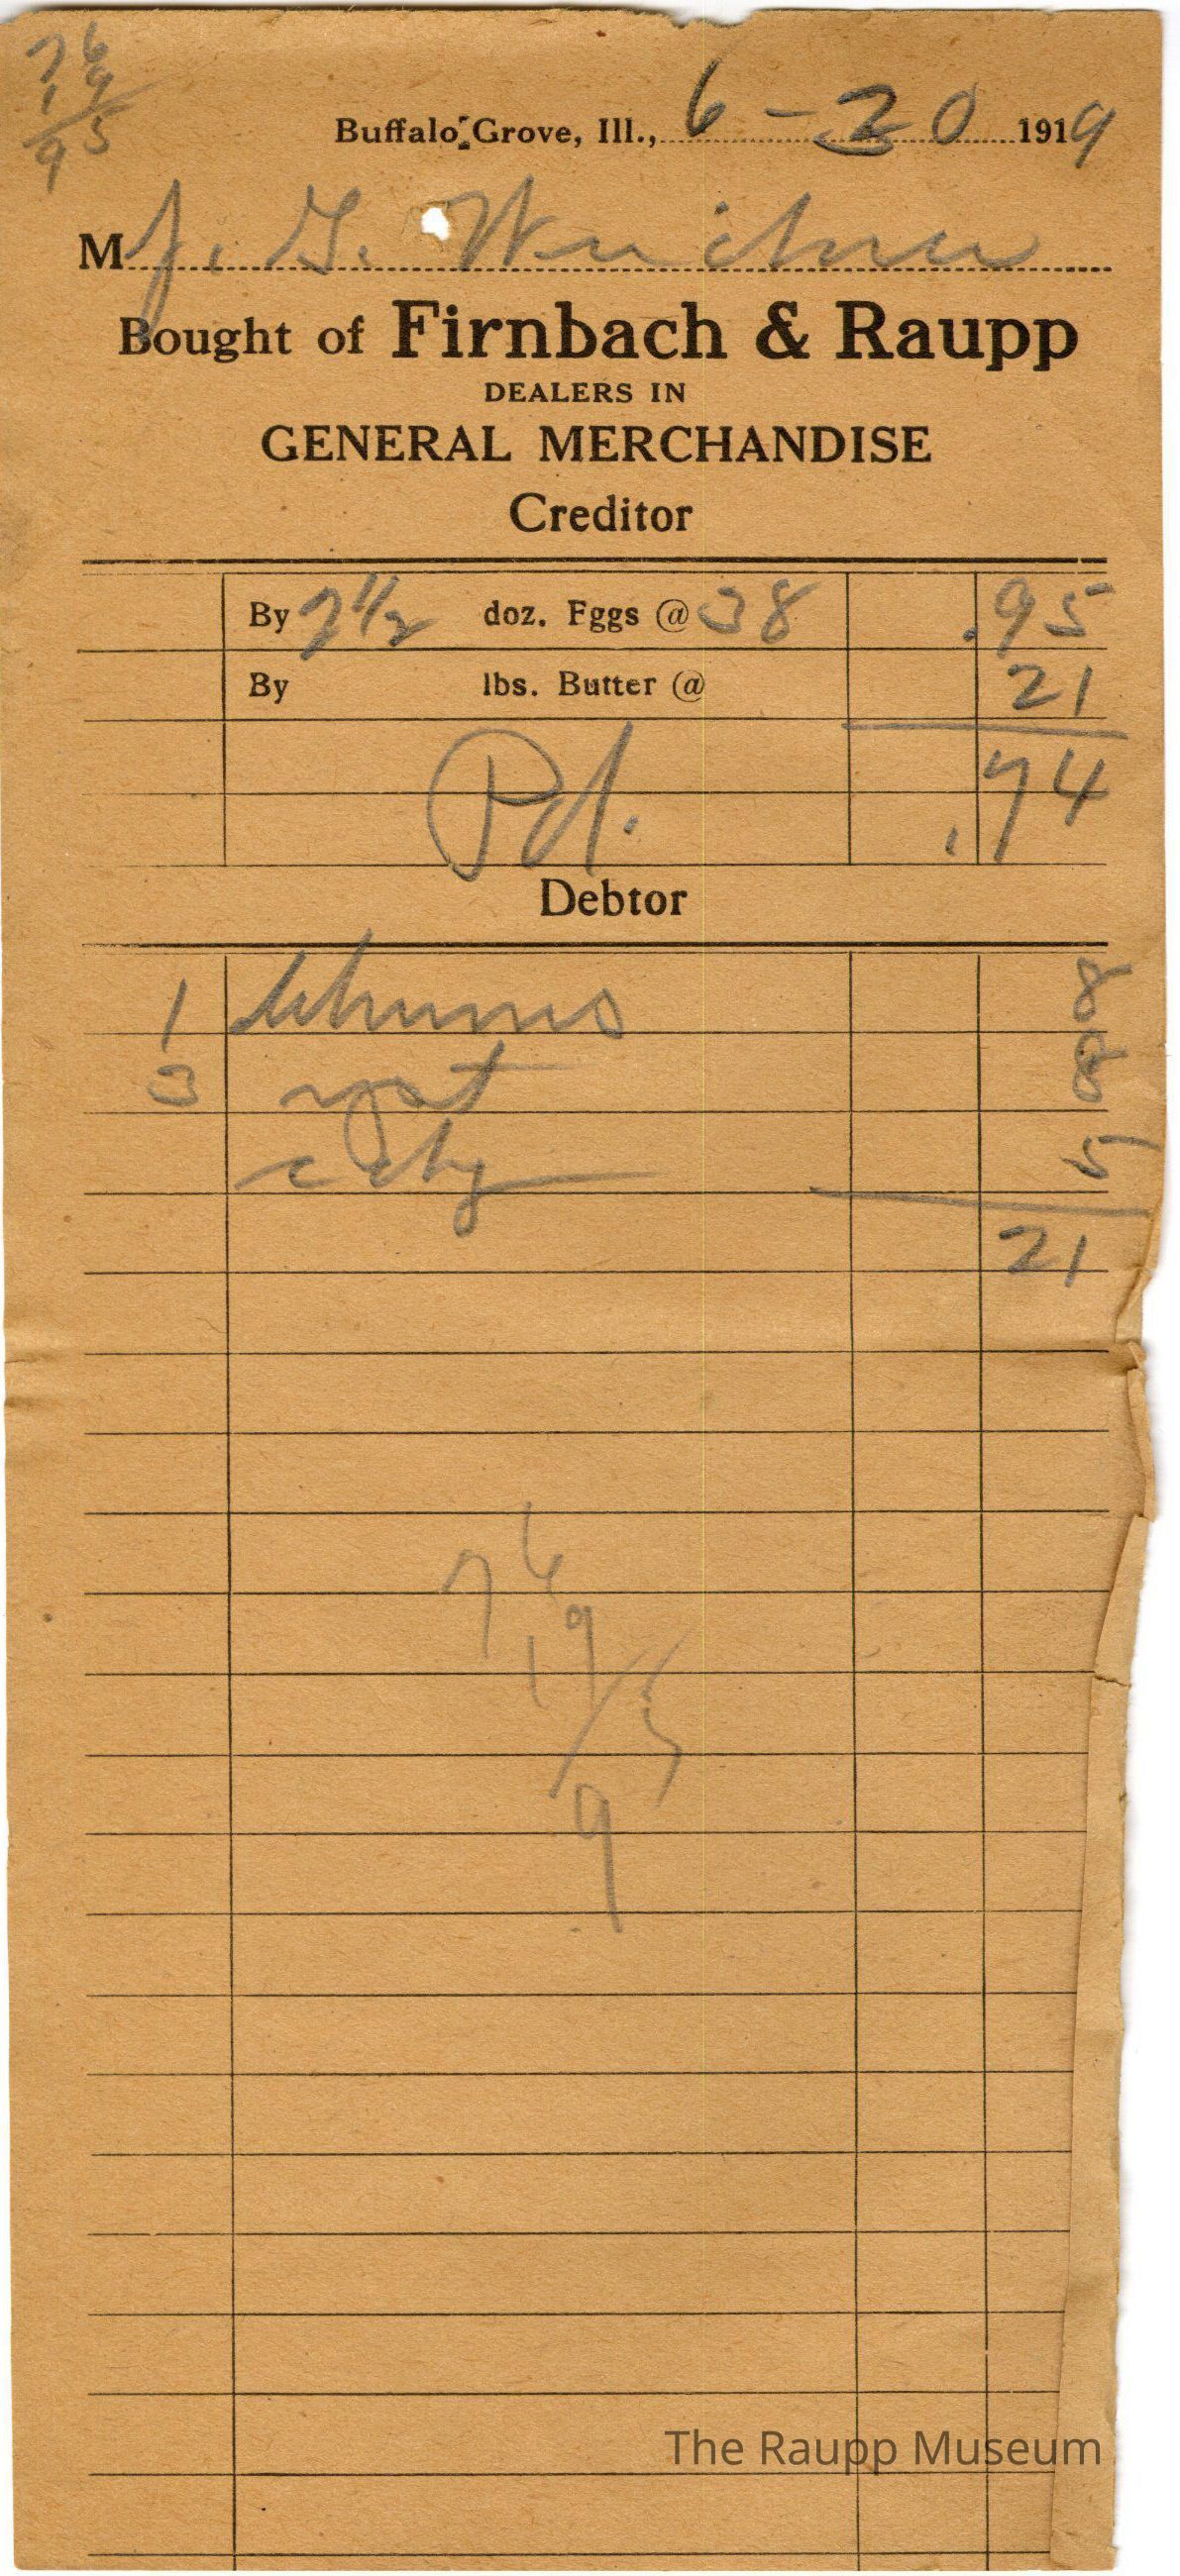 76
19
95
Buffalo Grove, Ill., 6-20 1919
M J. G. Weichner
Bought of Firnbach & Raupp
DEALERS IN
GENERAL MERCHANDISE
Creditor
By 2 1/2 doz. Eggs @ 38 .95
By lbs. Butter @ 21
74
Pd. .
Debtor
1 8
3 yst 8
city 5
21
76
19
95
The Raupp Museum